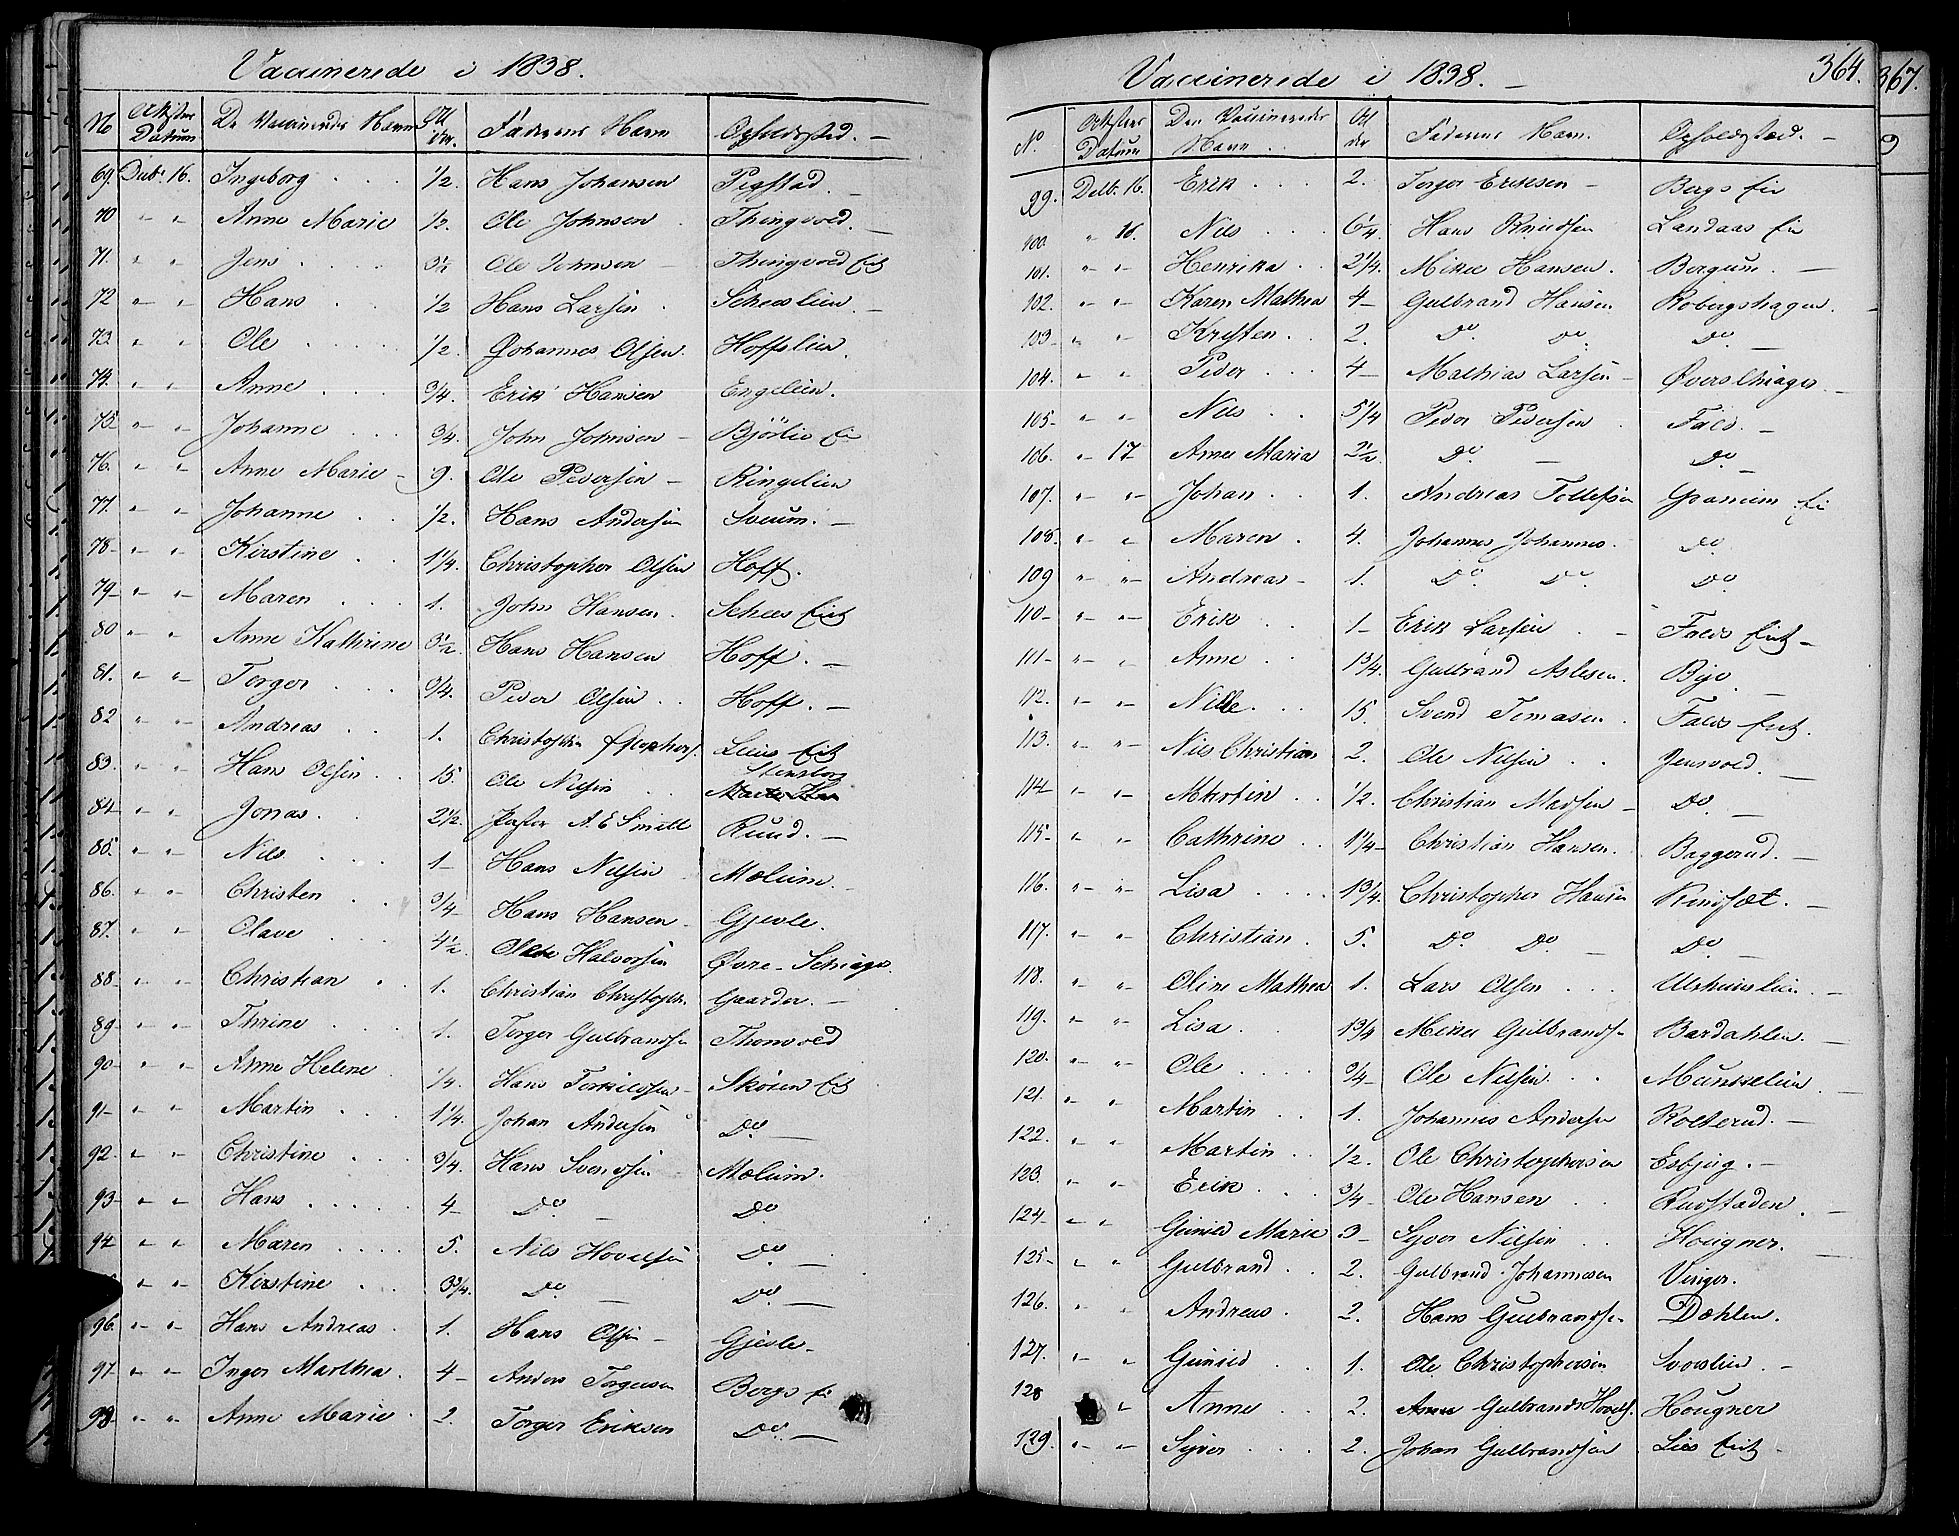 Vaccinerede i 1838.
No Attestens Datum De Vaccineredes Navn Alder. Faderens Navn Opholdssted. —
69. Decbr. 16. Ingeborg . . . 1/2. Hans Johansen
70 " " Anne Marie 1/2. Ole Johnsen Thingvold. —
71. " " Jens . . . . 3 1/2 Ole Johnsen — Thingvold Eie
72 " " Hans . . . 1/2 Hans Larsen . —
73. " " Ole . . . . 1/2. Johannes Olsen. Hoffslien.
74. " " Anne . . . 3/4. Erik Hansen Engelien.
75 " " Johanne . . . 3/4. John Johnsen — Bjørlie Eie
76. " " Anne Marie — 9. Ole Pedersen — Ringelien
77. " " Johanne . . 1/2. Hans Andersen Sveum. —
78 — " " Kirstine . . 1 1/4. Christopher Olsen Hoff.
79 — " " Maren . . . 1. John Hansen . Eiet
80 " " Anne Kathrine 3 1/2. Hans Hansen Hoff. —
81. " " Torger . . . 3/4. Peder Olsen . . Hoff. —
82 " " Andreas . . 1. Christophers. Eiet
83. " " Hans Olsen . . 15. Ole Nilsen . . Stensborg
84 " " Jonas . . 2 1/2. Pastor A. E. Smith Ruud. —
85. " " Nils . . . . 1 — Hans Nilsen Mælum. —
86. " " Christen . . 3/4 — Hans Hansen — Gjevle.
87. " " Olave . . . 4 1/2. Halvorsen Øvre-Schiager.
88 — " " Christian . 1. Christian Christophers. Gaarder. —
89 — " " Thrine . . . 1. Torger Gulbrandsen Thomvold
90 — " " Anne Helene . 1/4. Hans Torkildsen — Skøien Eie
91 — " " Martin . . . 1 1/4. Johan Andersen Do. —
92. " " Christine . . . 3/4. Hans Svendsen Mælum.
93 — " " Hans . . . . . 4 — Do — Do.
94 " " Maren . . . . 5. Nils Hovelsen Do. —
" " Kirstine . . 3 3/4. Do. — Do. —
96. " " Hans Andreas . 1. Hans Olsen — Gjevle —
97 — " " Inger Marthea . 4 — Anders Torgersen Bergs Eie
98 — " " Anne Marie . 2. Torger Eriksen Do. —
Vaccinerede i 1838. — 364. 367.
No. Attestens Datum Den Vaccineredes Navn . . Alder Faderens Navn. Opholdssted. —
99. Decb. 16. Erik . . . 2. Torger Eriksen — Bergs Eie
100. " 16. Nils . . . 6 1/4. Hans Knudsen Landaas Eie
101. " " Henrika . . 2 1/4. Mikel Hansen . Bergum. —
102. " " Karen Mathea 4 — Gulbrand Hansen Robergshagen. —
103 — " " Kristen . . 2. Do Do Do —
104. " " Peder . . . 4 — Mathias Larsen — Øverschiager —
105 — " " Nils . . 5 1/4 Peder Pedersen . Fald. —
106. " 17 Anne Maria 2 1/2. Do. — Do —
107. " " Johan . . 1. Andreas Tollefsen Granum Eie
108. " " Maren . 4. Johannes Johannes. Do.
109 " " Andreas — 1. Do Do Do
110 — " " Erik . . 1 — Erik Larsen . — Falds Eiet —
111 — " " Anne . . 1 3/4. Gulbrand Aslesen. Bye. —
112. " " Nille . . . 15. Svend Tomasen . Falds Eiet.
113. " " Nils Christian 2. Ole Nilsen . . Jensvold. —
114 " " Martin . . 1/2. Christian Madsen — Do. —
115 — " " Cathrine . . 1 1/4 — Christian Hansen. Baggerud. —
116. " " Lisa . . . . 1 3/4. Christopher Hansen Kindset. —
117. " " Christian . 5. Do. Do — Do —
118. " " Oline Mathea 1. Lars Olsen . . . Ulshuuslien. —
119. " " Lisa . . . 1 3/4 Mikel Gulbrandsen Bardahlen. —
120. " " Ole . . . . 3/4 — Ole Nilsen . . . Munkelien —
121. " " Martin . . 1. Johannes Andersen Kolterud. —
122. " " Martin . . 1/2. Ole Christophersen Esbjug. —
123. " " Erik . . . 3/4 — Ole Hansen . . Rudstaden. —
124 — " " Gunild Marie 3 — Syver Nilsen . . Hougner. —
125 — " " Gulbrand . . 2. Gulbrand Johannesen Vinger.
126. " " Andreas . 2. Hans Gulbrandsen Dæhlen.
127. " " Gunild . . 1. Ole Christophersen Svoslien. —
128 " Anne . . 2. Gulbrand Hovels. Hougner
129. " " Syver . . . 2. Johan Gulbrandsen Lies Eiet —